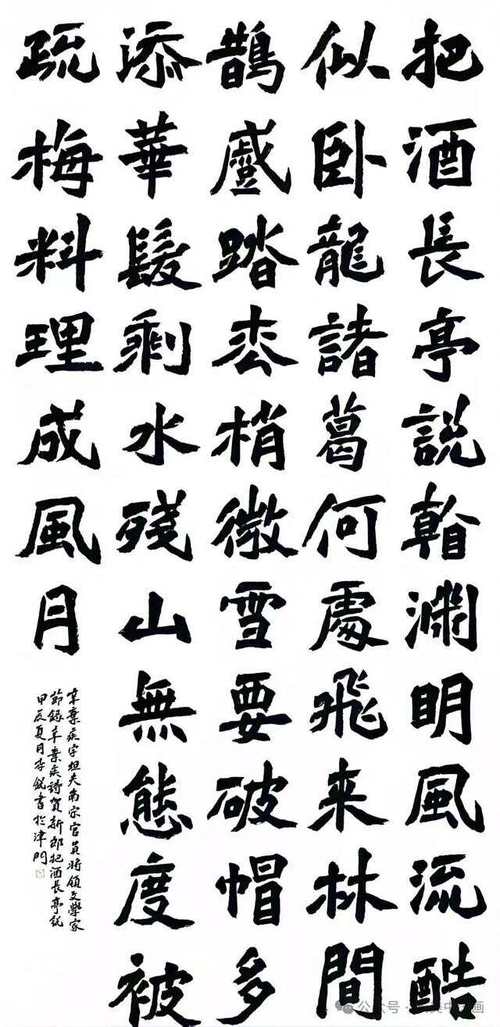 把酒長亭說看淵明風流酷
似卧龍諸葛何處飛來林間
鵲蹙踏枩梢微雪要破帽多
添華髮剩水殘山無態度被
疏梅料理成風月
辛棄疾字坦夫南宋官員將領文學家
節錄辛棄疾詩賀新郎把酒長亭說
甲辰夏月李銳書於津門
公众号